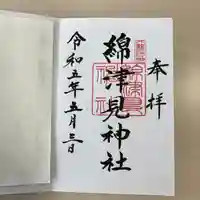 奉拝
綿津見神社
令和五年五月三日